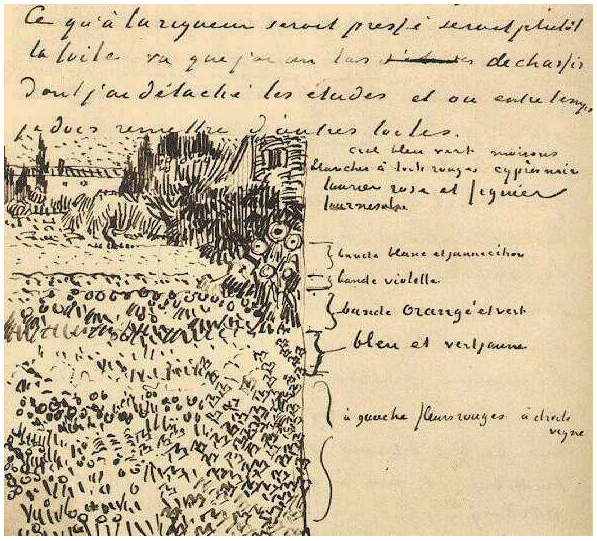 Ce qu'à la rigueur serait pressé serait plutôt
la toile vu que j'ai un tas de chassis
dont j'ai détaché les études et ou entretemps
je dois remettre d'autres toiles.
ciel bleu vert maisons
blanches à toits rouges cyprès noir
laurier rose et figuier
tournesols
bande blanc et jaune citron
bande violette
bande orangé et vert
bleu et vert jaune
à gauche fleurs rouges à droite
vigne